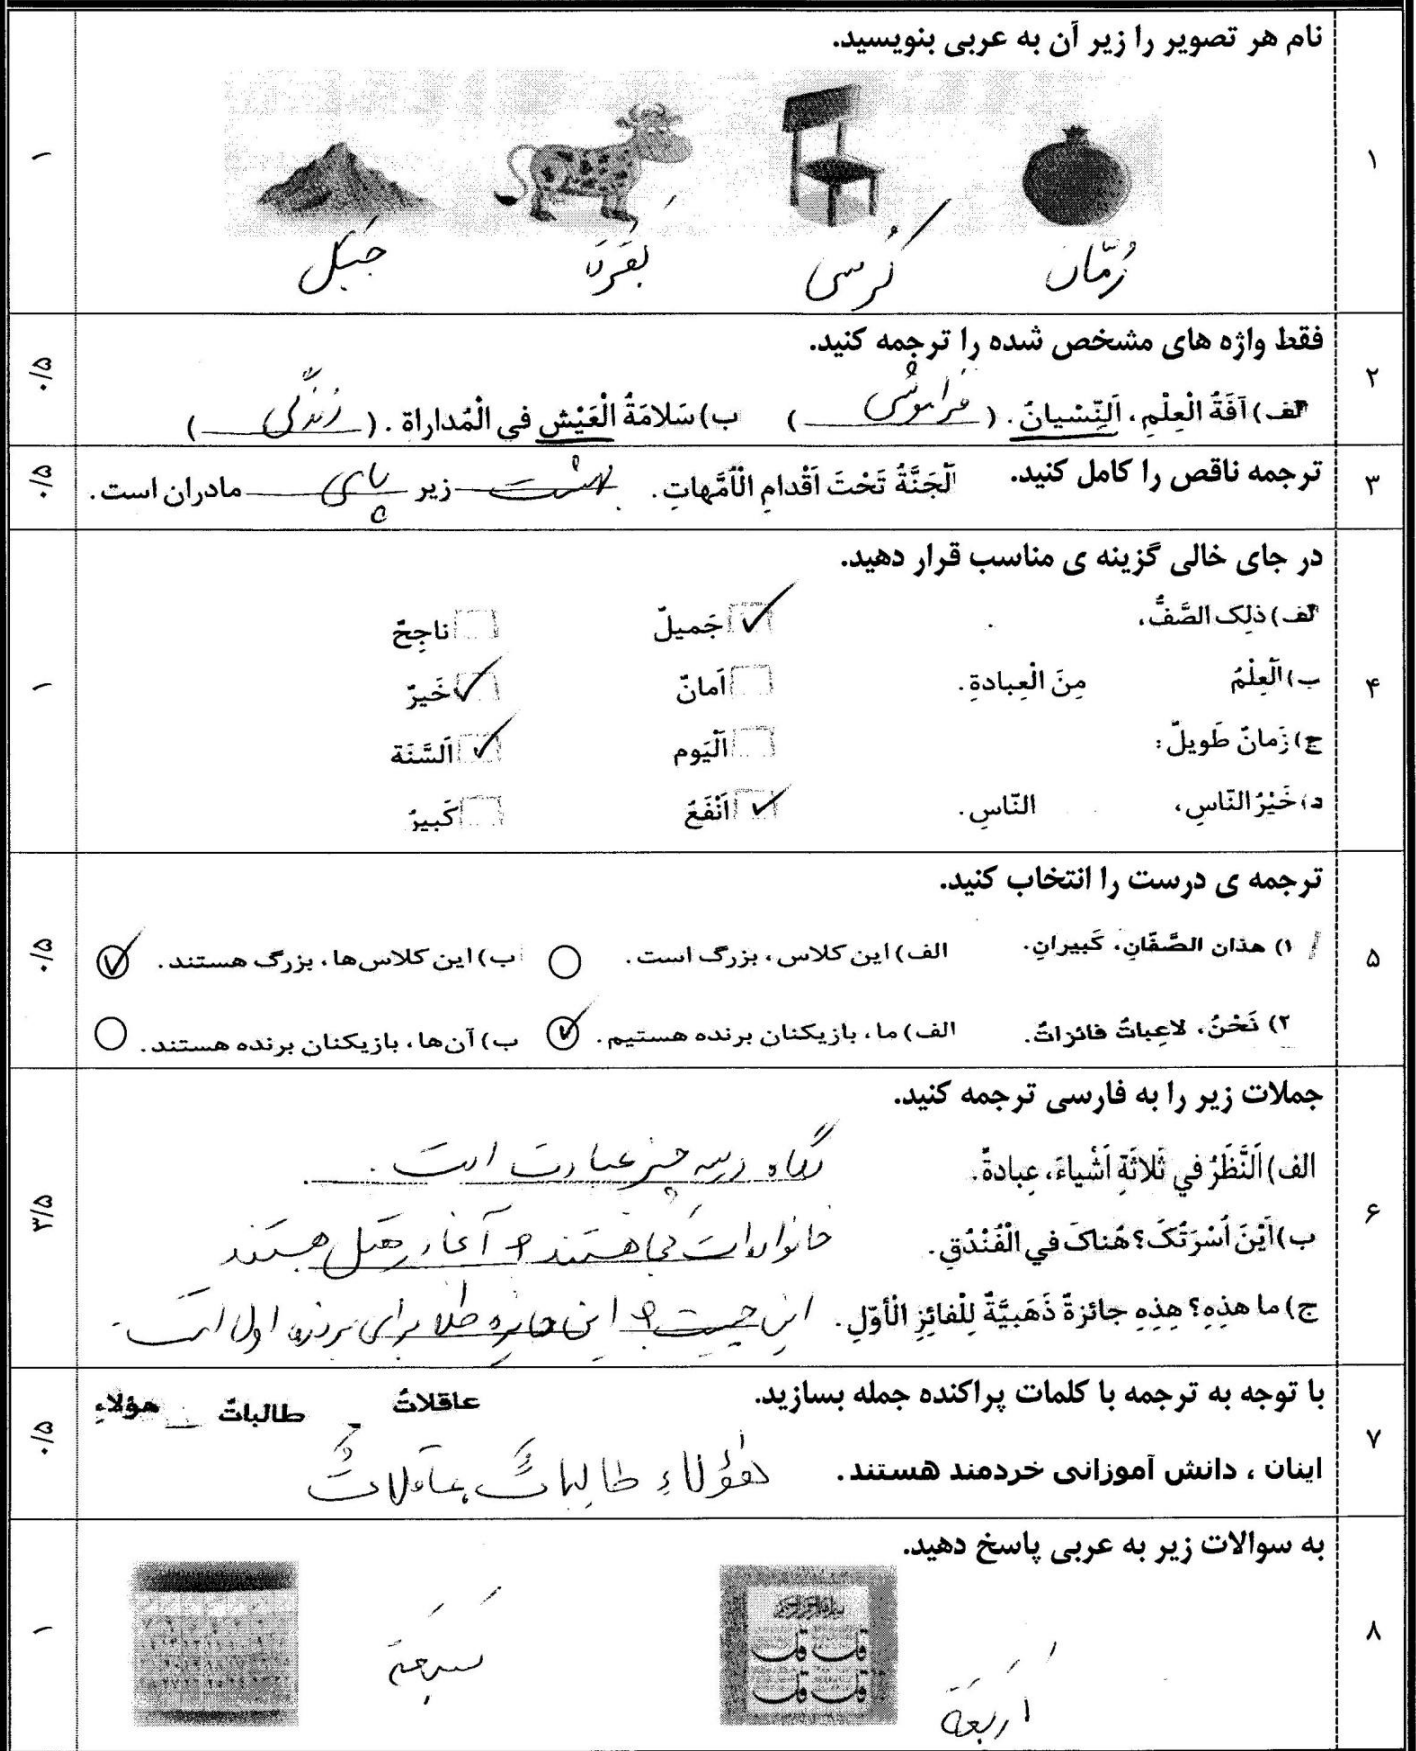 نام هر تصویر را زیر آن به عربی بنویسید.
۱
۱
رُمّان کُرسی بَقَرَة جَبَل
فقط واژه های مشخص شده را ترجمه کنید.
۲
۰/۵
الف) آفَةُ الْعِلْمِ، اَلنِّسْیانُ. ( فراموشی ) ب) سَلامَةُ الْعَیْشِ في الْمُداراة. ( زندگی )
۳ ترجمه ناقص را کامل کنید. اَلْجَنَّةُ تَحْتَ اَقْدامِ الْاُمَّهاتِ. بهشت زیر پای مادران است. ۰/۵
در جای خالی گزینه ی مناسب قرار دهید.
الف) ذلِكَ الصَّفُّ، . جَمیلٌ ✓ ناجِحٌ
۴ ب) اَلْعِلْمُ مِنَ الْعِبادةِ. اَمانٌ خَیرٌ ✓ ۱
ج) زَمانٌ طَویلٌ: اَلْیَوم اَلسَّنَة ✓
د) خَیْرُ النّاسِ، النّاسِ. اَنْفَعُ ✓ کَبیرٌ
ترجمه ی درست را انتخاب کنید.
۵
۰/۵
۱) هذان الصَّفّانِ، کَبیرانِ. الف) این کلاس، بزرگ است. ب) این کلاس‌ها، بزرگ هستند. ✓
۲) نَحْنُ، لاعِباتٌ فائزاتٌ. الف) ما، بازیکنان برنده هستیم. ✓ ب) آن‌ها، بازیکنان برنده هستند.
جملات زیر را به فارسی ترجمه کنید.
الف) اَلنَّظَرُ في ثَلاثَةِ اَشْیاءَ، عِبادةٌ. نگاه در سه چیز عبادت است.
۶
۳/۵
ب) اَیْنَ اُسْرَتُكَ؟ هُناكَ في الْفُنْدُقِ. خانواده‌ات کجا هستند؟ هتل هستند
ج) ما هذِهِ؟ هذِهِ جائزةٌ ذَهَبیَّةٌ لِلْفائِزِ الْأوّلِ. این چیست؟ این جایزه طلا برای برنده اول است.
با توجه به ترجمه با کلمات پراکنده جمله بسازید. عاقلاتٌ طالباتٌ هؤلاءِ
۷
۰/۵
اینان ، دانش آموزانی خردمند هستند. هٰؤُلاءِ طالباتٌ عاقلاتٌ
به سوالات زیر به عربی پاسخ دهید.
۸
۱
قل قل
قل قل
اربعة سبعة